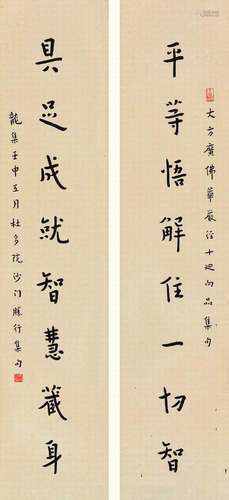 大方廣佛華嚴經十迴向品集句
平等悟解住一切智
具足成就智慧藏身
龍集壬申五月杜多院沙門勝行集句